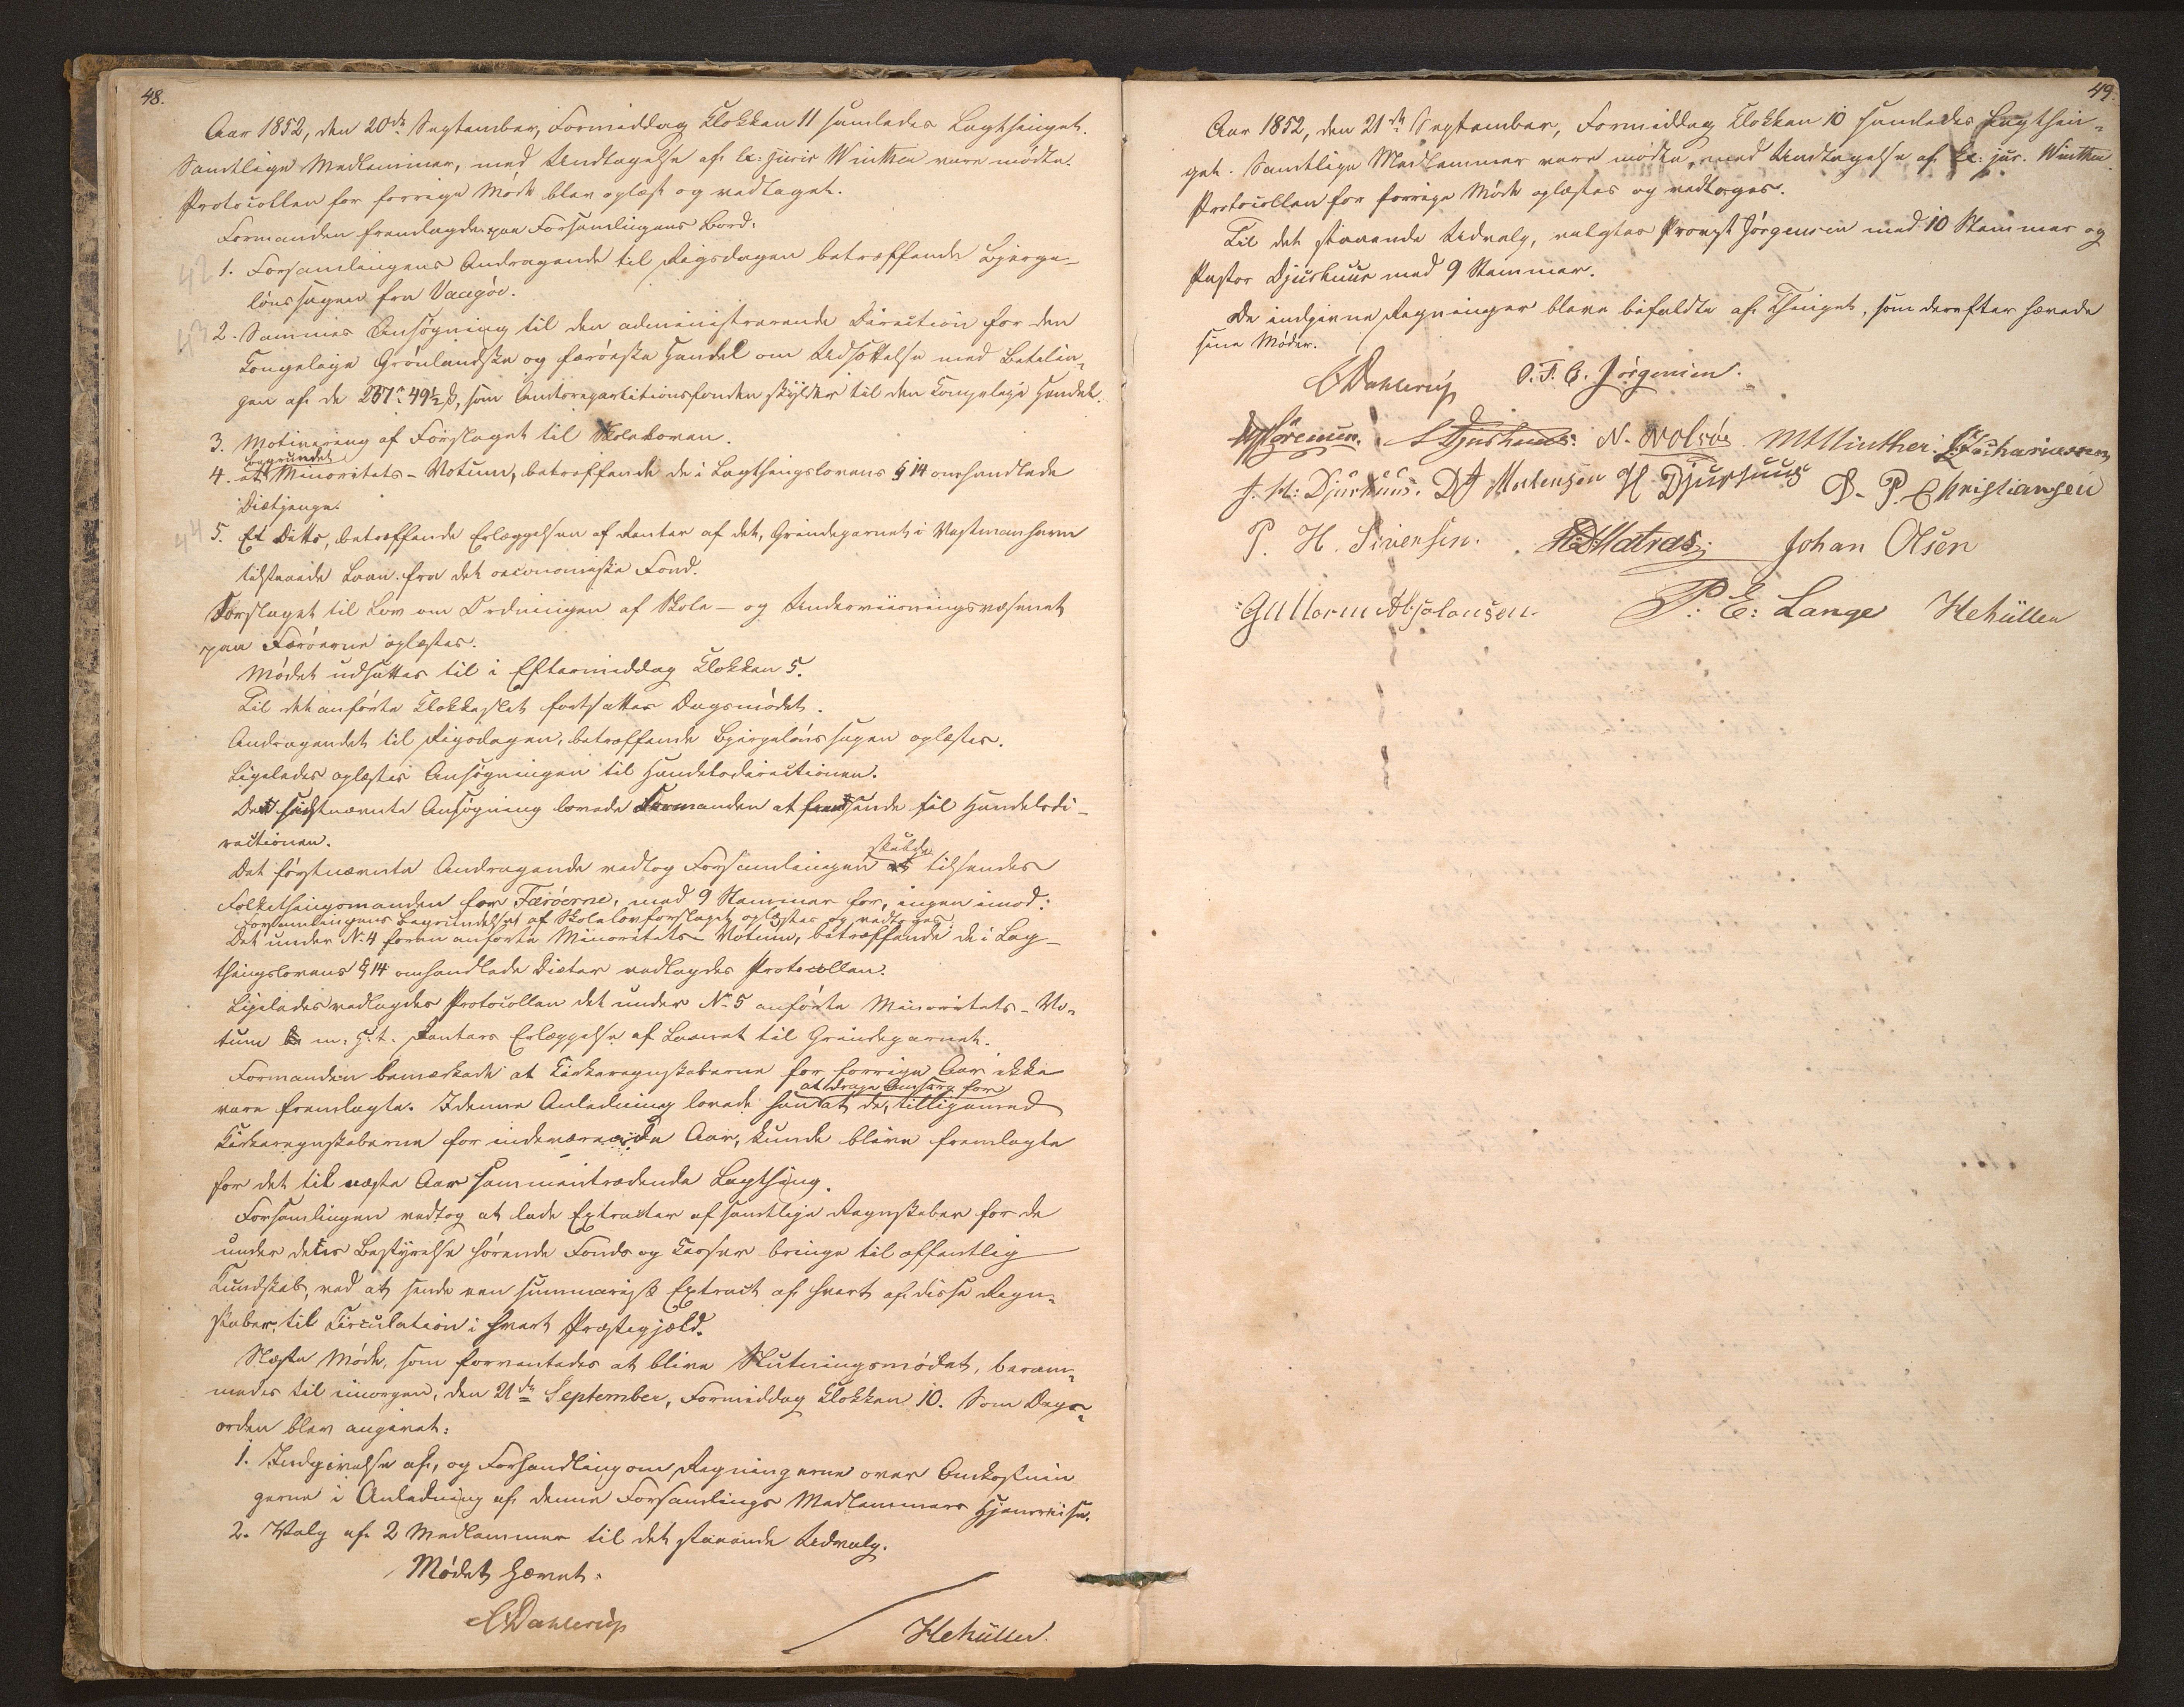 48.
Aar 1852, den 20de September, Formiddag Klokken 11 samledes Lagthinget.
Samtlige Medlemmer, med Undtagelse af Ex: juris Winther vare mødte.
Protocollen for forrige Møde blev oplæst og vedtaget.
Formanden fremlagde paa Forsamlingens Bord:
42 1. Forsamlingens Andragende til Rigsdagen betræffende Bjerge-
lønssagen fra Vaagöe.
43 2. Sammes Ansøgning til den administrerende Direction for den
Kongelige Grönlandske og færöeske Handel om Udsættelse med Betalin-
gen af de 287 rd 49½ ß, som Amtsrepartitionsfonden skylder til den Kongelige Handel.
3. Motivering af Forslaget til Skoleloven.
begrundet
4. et Minoritets-Votum, betræffende de i Lagthingslovens § 14 omhandlede
Diætpenge.
44 5. Et Ditto, betræffende Erlæggelsen af Renter af det, Grindegarnet i Vestmanhavn
tilstaaede Laan fra det oeconomiske Fond.
Forslaget til Lov om Ordningen af Skole- og Underviisningsvæsenet
paa Færöerne oplæstes.
Mödet udsattes til i Eftermiddag Klokken 5.
Til det anførte Klokkeslet fortsattes Dagsmödet.
Andragendet til Rigsdagen, betræffende Bjergelönssagen oplæstes.
Ligeledes oplæstes Ansøgningen til Handelsdirectionen.
Den sidstnævnte Ansøgning lovede Formanden at fremsende til Handelsdi-
rectionen.
skulde
Det førstnævnte Andragende vedtog Forsamlingen at tilsendes
Folkethingsmanden for Færöerne, med 9 Stemmer for, ingen imod.
Forsamlingens Begrundelse af Skolelovforslaget oplæstes og vedtoges.
Det under No 4 foran anførte Minoritets-Votum, betræffende de i Lag-
thingslovens § 14 omhandlede Diæter vedlagdes Protocollen.
Ligeledes vedlagdes Protocollen det under No 5 anførte Minoritets-Vo-
tum m. H. t. Renters Erlæggelse af Laanet til Grindegarnet.
Formanden bemærkede at Kirkeregnskaberne for forrige Aar ikke
at drage Omsorg for
vare fremlagte. I denne Anledning lovede han at de, tilligemed
Kirkeregnskaberne for indeværende Aar, kunde blive fremlagte
for det til næste Aar sammentrædende Lagthing.
Forsamlingen vedtog at lade Extracter af samtlige Regnskaber for de
under dets Bestyrelse hörende Fonds og Casser bringe til offentlig
Kundskab, ved at sende een summarisk Extract af hvert af disse Regn-
skaber til Circulation i hvert Præstegjæld.
Næste Møde, som forventedes at blive Slutningsmødet, beram-
medes til imorgen, den 21de September, Formiddag Klokken 10. Som Dags-
orden blev angivet:
1. Indgivelse af, og Forhandling om Regningerne over Omkostnin
gerne i Anledning af denne Forsamlings Medlemmers Hjemreise.
2. Valg af 2 Medlemmer til det staaende Udvalg.
Mødet hævet.
CDahlerup
HMüller.
49.
Aar 1852, den 21de September, Formiddag Klokken 10 samledes Lagthin-
get. Samtlige Medlemmer vare mødte, med Undtagelse af Ex: jur. Winther.
Protocollen for forrige Møde oplæstes og vedtoges.
Til det staaende Udvalg, valgtes Provst Jørgensen med 10 Stemmer og
Pastor Djurhuus med 9 Stemmer.
De indgivne Regninger bleve bifaldte af Thinget, som derefter hævede
sine Møder.
CDahlerup O. F. C. Jörgensen.
Sörensen. Djurhuus: N. Nolsöe MMWinther. Zachariasen
J. H: Djurhuus. D J Mortensen H Djurhuus D. P. Christiansen
P. H. Sivensen. HDMatras; Johan Olsen
Guttorm Absolonsen. P: E: Lange HMüller